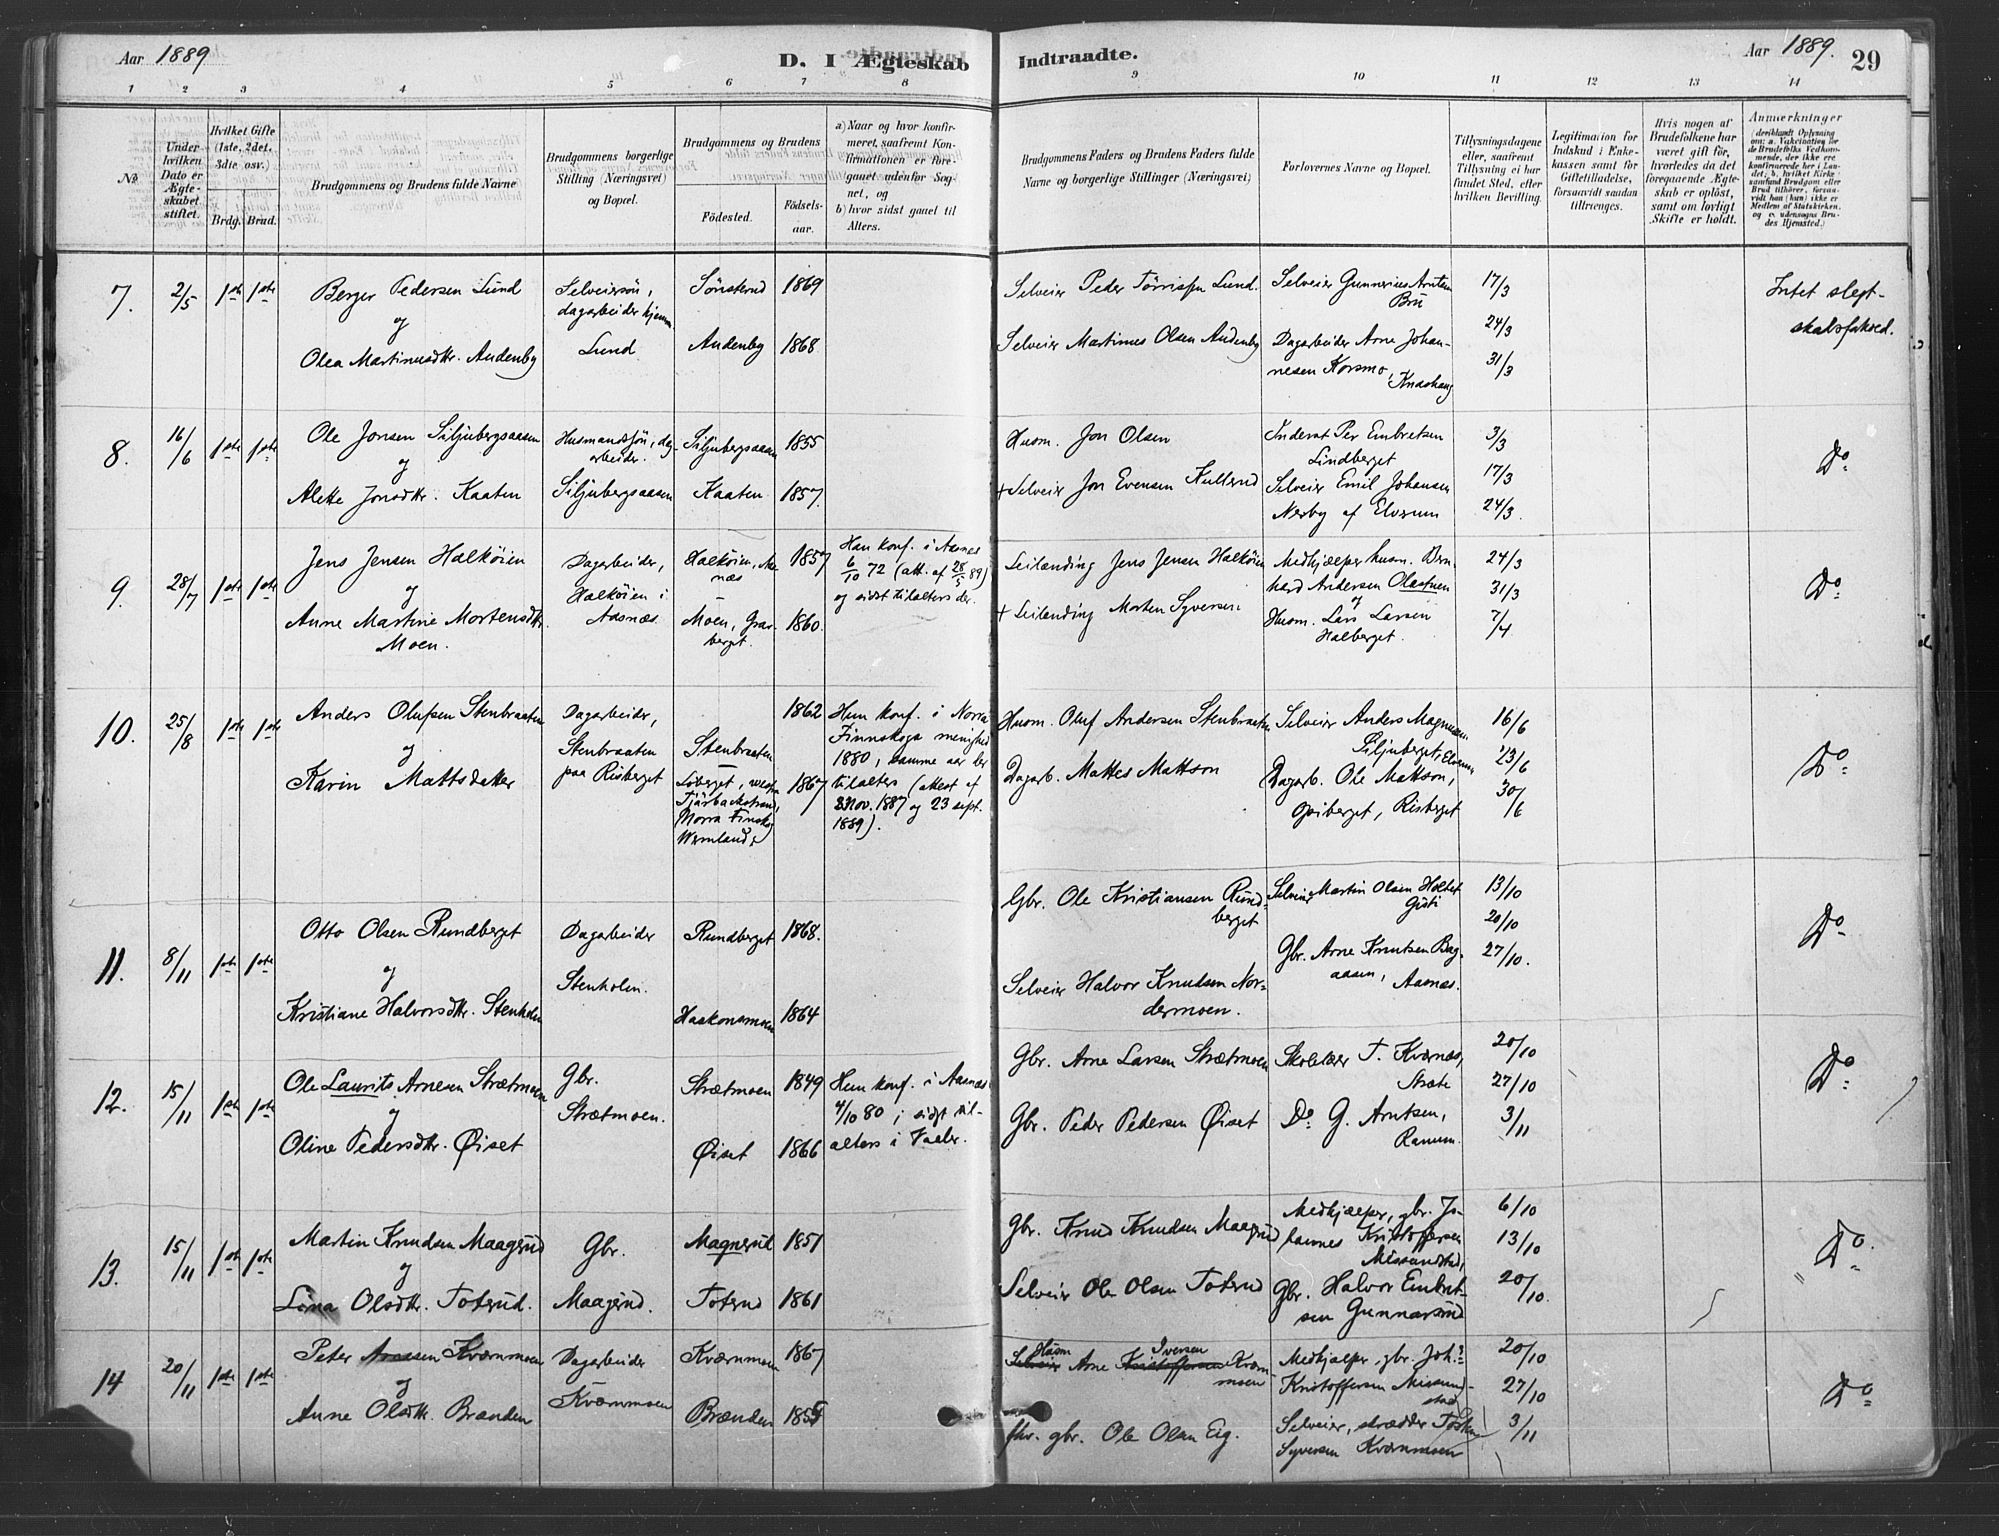 Aar 1889
D. I Ægteskab
Indtraadte.
Aar 1889.
29
1 2 3 4 5 6 7 8
9 10 11 12 13 14
No
Under hvilken Dato er Ægteskabet stiftet.
Hvilket Gifte (1ste, 2det, 3die osv.)
Brdg. Brud.
Brudgommens og Brudens fulde Navne
Brudgommens borgerlige Stilling (Næringsvei) og Bopæl.
Brudgommens og Brudens
Födested.
Födselsaar.
a) Naar og hvor konfirmeret, saafremt Konfirmationen er foregaaet udenfor Sognet, og
b) hvor sidst gaaet til Alters.
Brudgommens Faders og Brudens Faders fulde Navne og borgerlige Stillinger (Næringsvei)
Forlovernes Navne og Bopæl.
Tillysningsdagene eller, saafremt Tillysning ei har fundet Sted, efter hvilken Bevilling.
Legitimation for Indskud i Enkekassen samt for Giftetilladelse, forsaavidt saadan tiltrænges.
Hvis nogen af Brudefolkene har været gift för, hvorledes da det foregaaende Ægteskab er oplöst, samt om lovligt Skifte er holdt.
Anmerkninger
(deriblandt Oplysning om: a. Vaccination for de Brudefolks Vedkommende, der ikke ere konfirmerede her i Landet; b. hvilket Kirkesamfund Brudgom eller Brud tilhörer, forsaavidt han (hun) ikke er Medlem af Statskirken, og c. udensogns Brudes Hjemsted.)
7. 2/5 1ste 1ste
Berger Pedersen Lund
og
Olea Martinusdtr. Audenby
Selveiersön, dagarbeider hjemme
Lund
Sönsterud 1869
Audenby 1868
Selveier Peder Törrissen Lund.
Selveier Martinus Olsen Audenby
Selveier Gunnerius Arntsen Bru
Dagarbeider Arne Johannesen Korsmo, Knashaug
17/3
24/3
31/3
Intet slegtskabsforhold.
8. 16/6 1ste 1ste
Ole Jonsen Siljubergsaasen
og
Alette Jonsdtr. Kaaten
Husmandssön, dagarbeider.
Siljubergsaasen
Siljubergsaasen 1855
Kaaten 1857.
Husm. Jon Olsen
+ Selveier Jon Evensen Kullerud
Inderst Per Embretsen Lindberget
Selveier Emil Johansen Nerby af Elverum
3/3
17/3
24/3.
Do
9. 28/7 1ste 1ste
Jens Jensen Halköien
og
Anne Martine Mortensdtr. Moen.
Dagarbeider,
Halköien i Aasnæs.
Halköien, Aasnæs 1857
Moen, Gravberget. 1860.
Han konf. i Aasnes
6/10 72 (att. af 28/5 89)
og sidst tilalters der.
Leilænding Jens Jensen Halköien
+ Leilænding Morten Syversen
Medhjælper husm. Bernhard Andersen
og
Husm. Lars Larsen Halberget.
24/3
31/3
7/4
Do
10. 25/8 1ste 1ste
Anders Olufsen Stenbraaten
og
Karin Mattsdatter
Dagarbeider,
Stenbraaten paa Risberget
Stenbraaten 1862
Löberget, vestra Tjärbackstrand, Norra Finskoga Wermland. 1867
Hun konf. i Norra Finnskoga menighed 1880, samme aar der tilalters (attest af 23 Nov. 1887 og 23 sept. 1889).
Husm. Oluf Andersen Stenbraaten
Dagarb. Mattes Mattson
Selveier Anders Magnusen Siljuberget, Elverum
Dagarb. Ole Mattson, Risberget
16/6
23/6
30/6
Do
11. 8/11 1ste 1ste
Otto Olsen Rundberget
og
Kristiane Halvorsdtr. Stenholen
Dagarbeider
Stenholen.
Rundberget 1868.
Haakonsmoen 1864
Gbr. Ole Kristiansen Rundberget
Selveier Halvor Knudsen Nordermoen.
Selveier Martin Olsen
Gbr. Arne Knutsen Bagaasen, Aasnæs.
13/10
20/10
27/10.
Do
12. 15/11 1ste 1ste
Ole Laurits Arnesen Strætmoen
og
Oline Pedersdtr. Øiset
Gbr.
Strætmoen.
Strætmoen 1849
Øiset 1866
Hun konf. i Aasnæs
4/10 80, sidst tilalters i Vaaler.
Gbr. Arne Larsen Strætmoen
Gbr. Peder Pedersen Øiset
Skolelær T. Kværnæs, Stræte
Do G. Arntsen, Ranum.
20/10
27/10
3/11
Do
13. 15/11 1ste 1ste
Martin Knudsen Maagrud
og
Lina Olsdtr. Toterud.
Gbr.
Maagrud.
Magnerud 1851
Toterud 1861
Gbr. Knud Knudsen Maagrud
Selveier Ole Olsen Toterud
Medhjælper, gbr. Johannes Kristoffersen Missundstad,
Gbr. Halvor Embretsen Gunnarsrud
6/10
13/10
20/10.
Do.
14 20/11 1ste 1ste
Peter Kværnmoen
og
Anne Olsdtr. Brænden
Dagarbeider
Kværnmoen
Kværnmoen 1867
Brænden 1855
Husm Iversen
Selveier Arne Kristoffersen Kværnmoen
fhv. gbr. Ole Olsen Eig.
Medhjælper, gbr. Joh.s Kristoffersen Missundstad
Selveier, skrædder Syversen Kværnmoen
20/10
27/10
3/11
Do